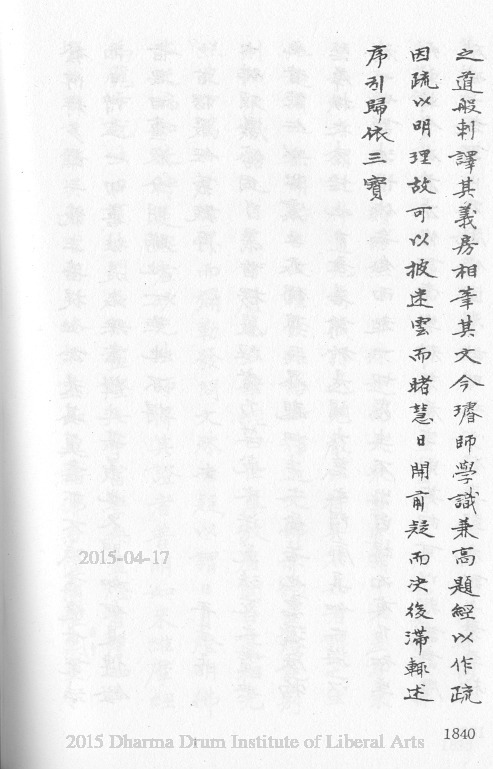 之道般刺譯其義房相筆其文今璿師學識兼高題經以作疏
因疏以明理故可以披迷雲而睹慧日開前疑而決後滯輒述
序引歸依三寶
2015-04-17
1840
2015 Dharma Drum Institute of Liberal Arts